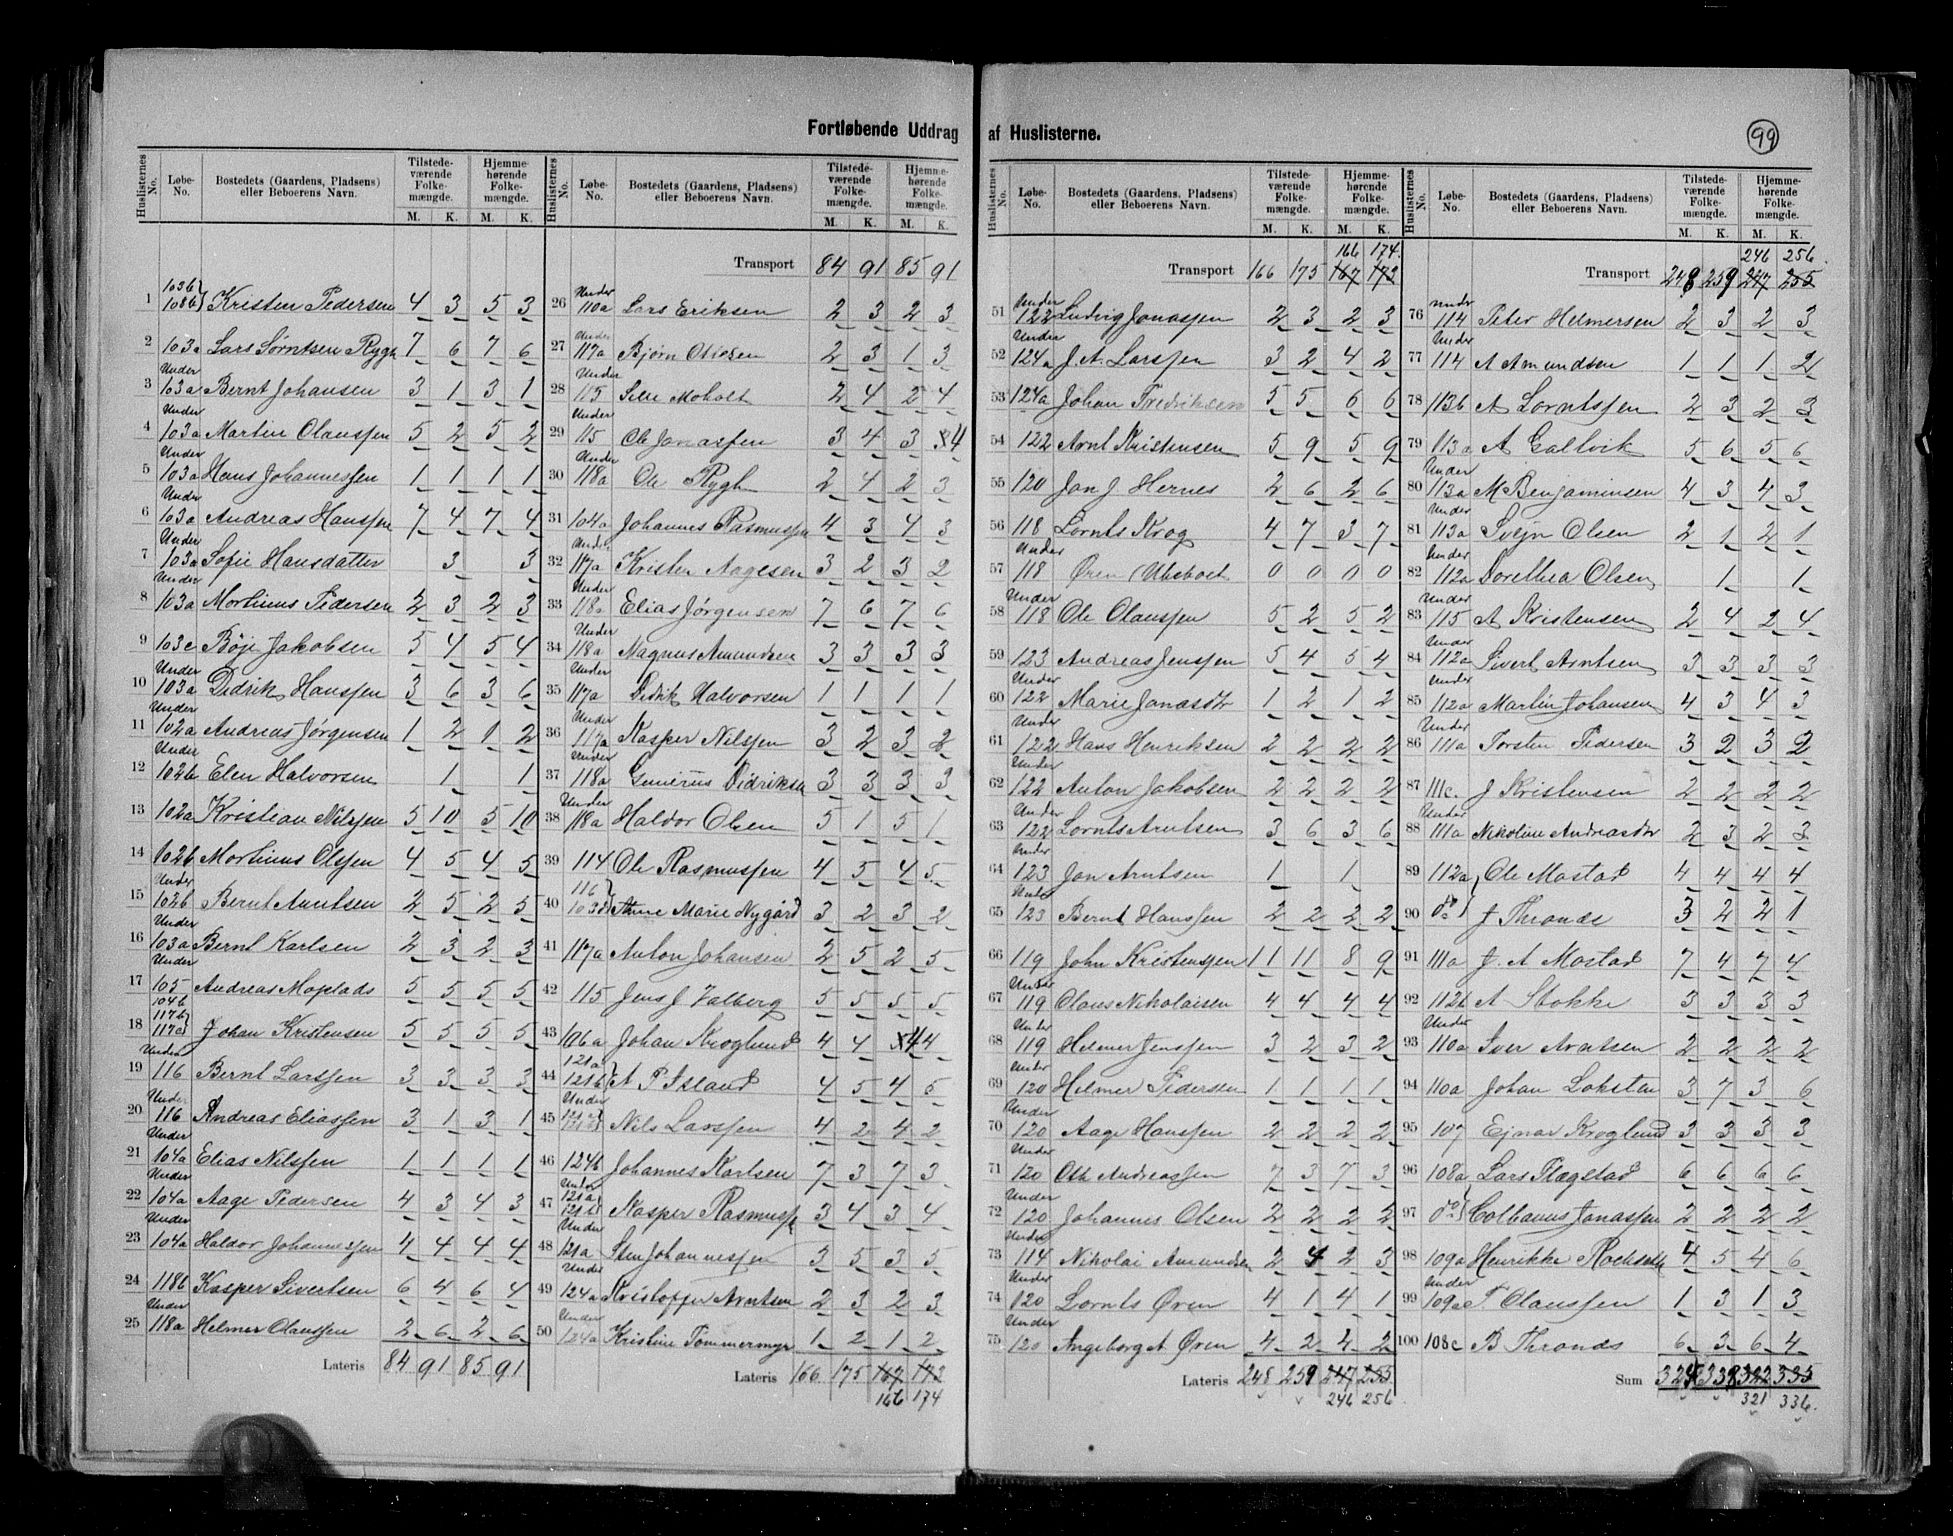 Fortløbende Uddrag af Huslisterne.
99
Huslisternes No. Løbe-No. Bostedets (Gaardens, Pladsens) eller Beboerens Navn. Tilstedeværende Folkemængde. M. K. Hjemmehørende Folkemængde. M. K.
1 103b 108b Kristen Pedersen 4 3 5 3
2 103a Lars Sørntsen Rygh 7 6 7 6
3 Under 103a Bernt Johansen 3 1 3 1
4 Under 103a Martin Olaussen 5 2 5 2
5 Under 103a Hans Johannessen 1 1 1 1
6 Under 103a Andreas Hanssen 7 4 7 4
7 Under 103a Sofie Hansdatter 3 3
8 Under 103a Mortinus Pedersen 2 3 2 3
9 103c Bøje Jakobsen 5 4 5 4
10 Under 103a Didrik Hanssen 3 6 3 6
11 Under 102a Andreas Jørgensen 1 2 1 2
12 Under 102b Elen Halvorsen 1 1
13 102a Kristian Nilssen 5 10 5 10
14 102b Mortinus Olssen 4 5 4 5
15 Under 102b Bernt Arntsen 2 5 2 5
16 Under 103a Bernt Karlsen 2 3 2 3
17 Under 105 Andreas Moplads 5 5 5 5
18 104b 117b 117c Johan Kristensen 5 5 5 5
19 Under 116 Bernt Larssen 3 3 3 3
20 Under 116 Andreas Eliassen 3 1 3 1
21 Under 104a Elias Nilssen 1 1 1 1
22 Under 104a Aage Pedersen 4 3 4 3
23 Under 104a Haldor Johannessen 4 4 4 4
24 118b Kasper Sivertsen 6 4 6 4
25 Under 118a Helmer Olaussen 2 6 2 6
Lateris 84 91 85 91
Huslisternes No. Løbe-No. Bostedets (Gaardens, Pladsens) eller Beboerens Navn. Tilstedeværende Folkemængde. M. K. Hjemmehørende Folkemængde. M. K.
Transport 84 91 85 91
26 Under 110a Lars Eriksen 2 3 2 3
27 Under 117a Bjørn Olsen 2 3 1 3
28 Under 115 Moholt 2 4 2 4
29 Under 115 Ole Jonassen 3 4 3 4
30 Under 118a Ole Rygh 2 4 2 3
31 104a Johannes Rasmussen 4 3 4 3
32 Under 117a Krister Aagesen 3 2 3 2
33 Under 118a Elias Jørgensen 7 6 7 6
34 Under 118a Magnus Amundsen 3 3 3 3
35 Under 117a Didrik Halvorsen 1 1 1 1
36 Under 117a Kasper Nilssen 3 2 3 2
37 Under 118a Didriksen 3 3 3 3
38 Under 118a Haldor Olsen 5 1 5 1
39 114 Ole Rasmussen 4 5 4 5
40 116 103d Anne Marie Nygård 3 2 3 2
41 117a Anton Johansen 2 5 2 5
42 115 Jens J Valberg 5 5 5 5
43 106a Johan Kroglund 4 4 4 4
44 121a 121b A P Island 4 5 4 5
45 Under 121a 121b Nils Larssen 4 2 4 2
46 124b Johannes Karlsen 7 3 7 3
47 Under 121a 121b Kasper Rasmussen 3 4 3 4
48 Under 121a Sten Johannessen 3 5 3 5
49 Under 124a Kristoffer Arntsen 2 3 2 3
50 Under 124a Kristine Tømmermyr 1 2 1 2
Lateris 166 175 167 173
166 174
Huslisternes No. Løbe-No. Bostedets (Gaardens, Pladsens) eller Beboerens Navn. Tilstedeværende Folkemængde. M. K. Hjemmehørende Folkemængde. M. K.
166 174.
Transport 166 175 167 173
51 Under 122 Ludvig Jonassen 2 3 2 3
52 Under 124a J. A. Larssen 3 2 4 2
53 124a Johan Fredriksen 5 5 6 6
54 122 Arnt Kristensen 5 9 5 9
55 120 Jon J Hernes 2 6 2 6
56 118 Lornts Krog 4 7 3 7
57 Under 118 Øren (Ubeboet 0 0 0 0
58 Under 118 Ole Olaussen 5 2 5 2
59 123 Andreas Jenssen 5 4 5 4
60 Under 122 Marie Jonasdtr 1 2 1 2
61 Under 122 Hans Henriksen 2 2 2 2
62 Under 122 Anton Jakobsen 2 2 2 2
63 Under 122 Lornts Arntsen 3 6 3 6
64 Under 123 Jon Arntsen 1 1
65 Under 123 Bernt Hanssen 2 2 2 2
66 119 John Kristenssen 11 11 8 9
67 Under 119 Olaus Nikolaisen 4 4 4 4
68 Under 119 Helmer Jenssen 3 2 3 2
69 Under 120 Helmer Pedersen 1 1 1 1
70 Under 120 Aage Hanssen 2 2 2 2
71 Under 120 Ole Andreassen 7 3 7 3
72 Under 120 Johannes Olsen 2 2 2 2
73 Under 114 Nikolai Amundsen 2 4 2 3
74 Under 120 Lornts Øren 4 1 4 1
75 Under 120 Ingeborg A Øren 4 2 4 2
Lateris 248 259 247 255
246 256
Huslisternes No. Løbe-No. Bostedets (Gaardens, Pladsens) eller Beboerens Navn. Tilstedeværende Folkemængde. M. K. Hjemmehørende Folkemængde. M. K.
246 256.
Transport 248 259 247 255
76 Under 114 Peter Helmersen 2 3 2 3
77 Under 114 A Amundsen 1 1 1 2
78 113b A Lorntssen 2 3 2 3
79 113a A Galtvik 5 6 5 6
80 Under 113a M Benjaminsen 4 3 4 3
81 Under 113a Svejn Olsen 2 1 2 1
82 Under 112a Dorethea Olsen 1 1
83 Under 115 A Kristensen 2 4 2 4
84 Under 112a Sivert Arntsen 3 3 3 3
85 Under 112a Martin Johansen 4 3 4 3
86 Under 111a Torsten Pedersen 3 2 3 2
87 111c. J Kristensen 2 2 2 2
88 Under 111a Nikoline Andreasdtr 2 3 2 3
89 112a Ole Mostad 4 4 4 4
90 do J Thronds 3 2 2 1
91 111a J. A Mostad 7 4 7 4
92 112b A Stokke 3 3 3 3
93 Under 110a Iver Arntsen 2 2 2 2
94 110a Johan Loksten 3 7 3 6
95 107 Ejnar Kroglund 3 3 3 3
96 108a Lars Flægstad 6 6 6 6
97 do Colbanus Jonassen 2 2 2 2
98 109a Henrikke 4 5 4 6
99 Under 109a T Olaussen 1 3 1 3
100 108c B Thronds 6 3 6 4
Sum 324 338 322 335
321 336.